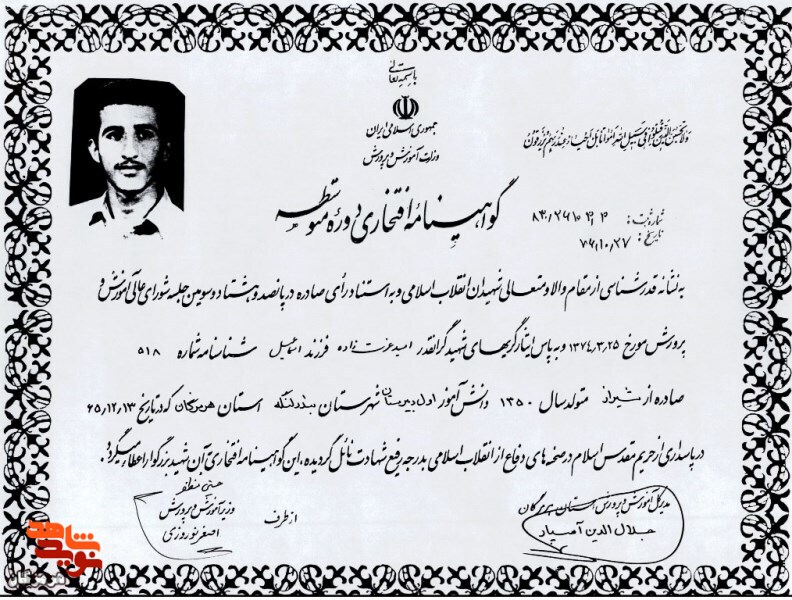 باسمه تعالی
جمهوری اسلامی ایران
وزارت آموزش و پرورش
ولا تحسبن الذین قتلوا فی سبیل الله امواتا بل احیاء عند ربهم یرزقون
گواهینامهٔ افتخاری دورهٔ متوسطه
شماره ثبت:
تاریخ: ۷۶،۱۰،۲۷
به نشانه قدرشناسی از مقام والا و متعالی شهیدان انقلاب اسلامی و به استناد رأی صادره در پانصد و هشتاد و سومین جلسه شورای عالی آموزش و
پرورش مورخ ۱۳۷۴،۳،۲۵ و به پاس ایثارگریهای شهید گرانقدر امید عزت زاده فرزند اسماعیل شناسنامه شماره ۵۱۸
صادره از شیراز متولد سال ۱۳۵۰ دانش آموز اول دبیرستان شهرستان بندرلنگه استان هرمزگان که در تاریخ ۶۵،۱۲،۱۳
در پاسداری از حریم مقدس اسلام در صحنه های دفاع از انقلاب اسلامی بدرجه رفیع شهادت نائل گردیده، این گواهینامه افتخاری به آن شهید بزرگوار اعطاء میگردد.
مدیر کل آموزش و پرورش استان هرمزگان
جلال الدین آمیاد
از طرف
حسین مظفر
وزیر آموزش و پرورش
اصغر نوروزی
نوید شاهد
هرمزگان